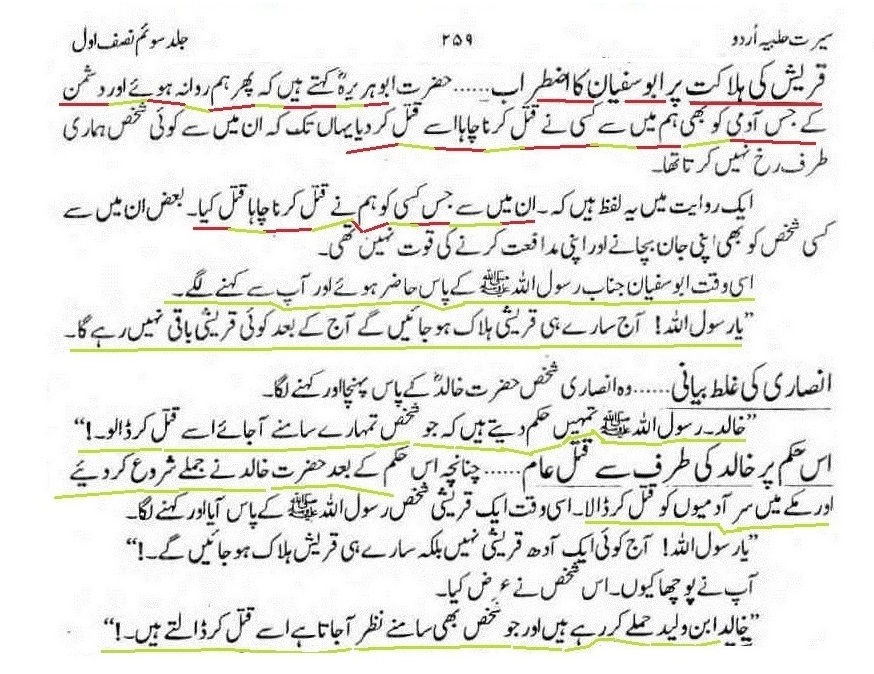 سیرت حلبیہ اُردو ۲۵۹ جلد سوئم نصف اول
قریش کی ہلاکت پر ابوسفیان کا اضطراب...... حضرت ابوہریرہؓ کہتے ہیں کہ پھر ہم روانہ ہوئے اور دشمن
کے جس آدمی کو بھی ہم میں سے کسی نے قتل کرنا چاہا اسے قتل کر دیا یہاں تک کہ ان میں سے کوئی شخص ہماری
طرف رخ نہیں کرتا تھا۔
ایک روایت میں یہ لفظ ہیں کہ۔ ان میں سے جس کسی کو ہم نے قتل کرنا چاہا قتل کیا۔ بعض ان میں سے
کسی شخص کو بھی اپنی جان بچانے اور اپنی مدافعت کرنے کی قوت نہیں تھی۔
اسی وقت ابوسفیان جناب رسول اللہ ﷺ کے پاس حاضر ہوئے اور آپ سے کہنے لگے۔
”یا رسول اللہ! آج سارے ہی قریشی ہلاک ہو جائیں گے آج کے بعد کوئی قریشی باقی نہیں رہے گا۔
انصاری کی غلط بیانی...... وہ انصاری شخص حضرت خالدؓ کے پاس پہنچا اور کہنے لگا۔
”خالد۔ رسول اللہ ﷺ تمہیں حکم دیتے ہیں کہ جو شخص تمہارے سامنے آجائے اسے قتل کر ڈالو۔!“
اس حکم پر خالد کی طرف سے قتل عام ...... چنانچہ اس حکم کے بعد حضرت خالد نے حملے شروع کر دیئے
اور مکے میں ستر آدمیوں کو قتل کر ڈالا۔ اسی وقت ایک قریشی شخص رسول اللہ ﷺ کے پاس آیا اور کہنے لگا۔
”یا رسول اللہ! آج کوئی ایک آدھ قریشی نہیں بلکہ سارے ہی قریش ہلاک ہو جائیں گے۔!“
آپ نے پوچھا کیوں۔ اس شخص نے عرض کیا۔
”خالد ابن ولید حملے کر رہے ہیں اور جو شخص بھی سامنے نظر آجاتا ہے اسے قتل کر ڈالتے ہیں۔!“